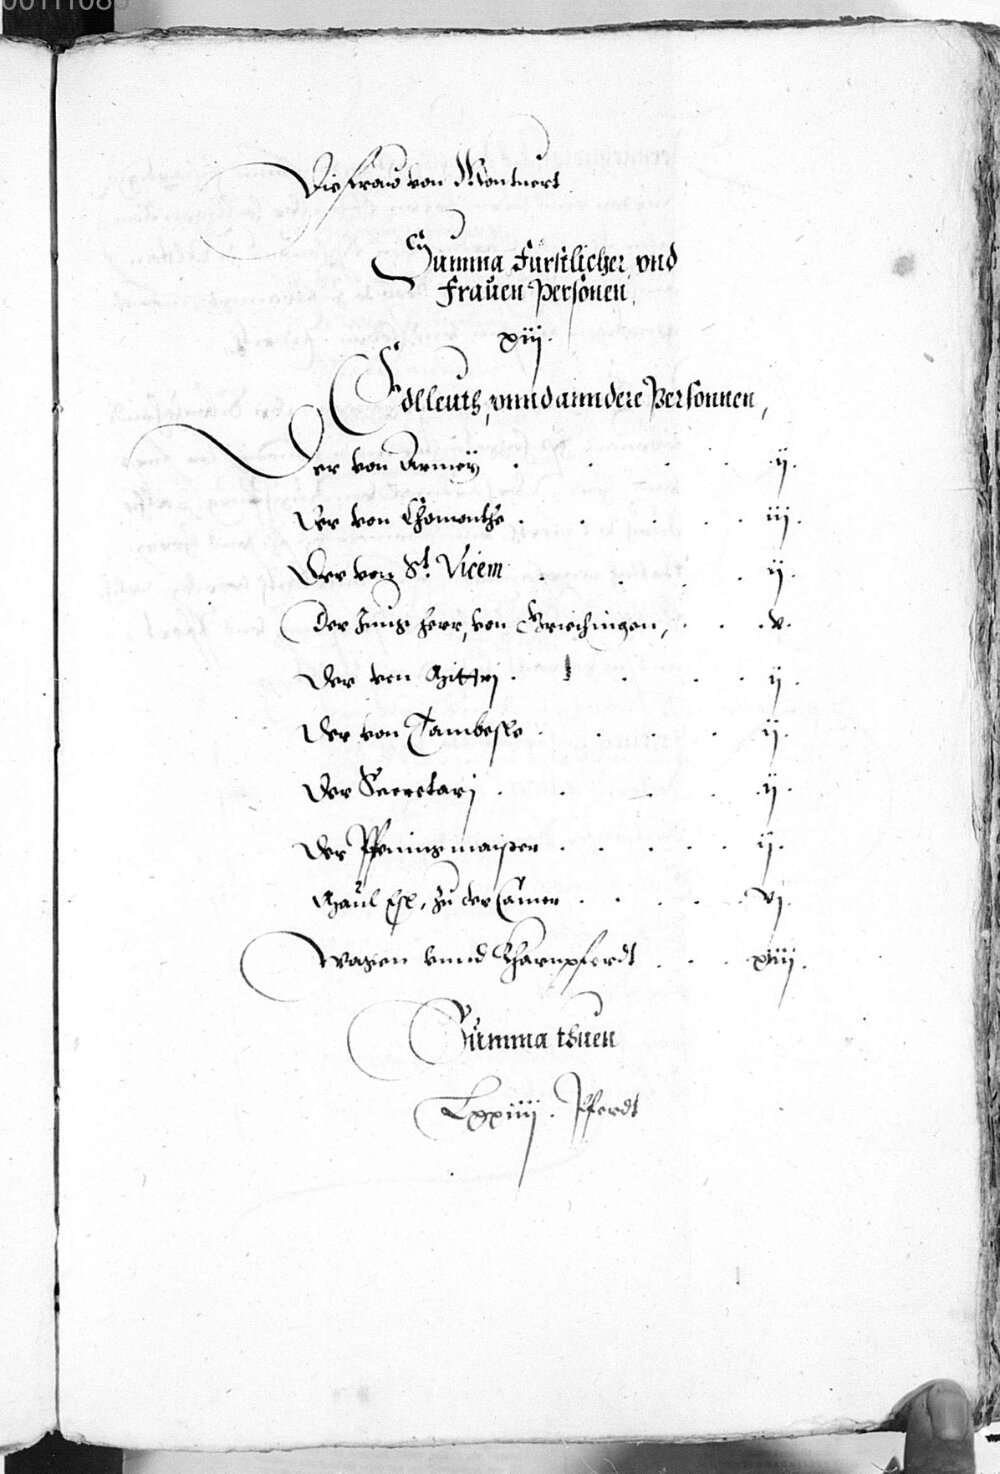 Die fraw von Montuert
Summa Fürstlicher vnd
Frauen Personen,
xiij.
Edlleuth, vnnd annndere Personnen,
Der von Armoy . . . . . ij.
Der von Chamonthe . . . . . iij.
Der von St. Vicem . . . . ij.
Der Jung herr, von Griechingen, . . . v.
Der von . . . . ij.
Der von . . . . ij.
Der Secretarj . . . . . ij.
Der Pfeningmaister . . . . . ij.
Maul Esl, zu der Camer . . . . vj.
Wagen vnnd Kharnpferdt . . . xiiij.
Summa thuen
Lxxiiij. Pferdt